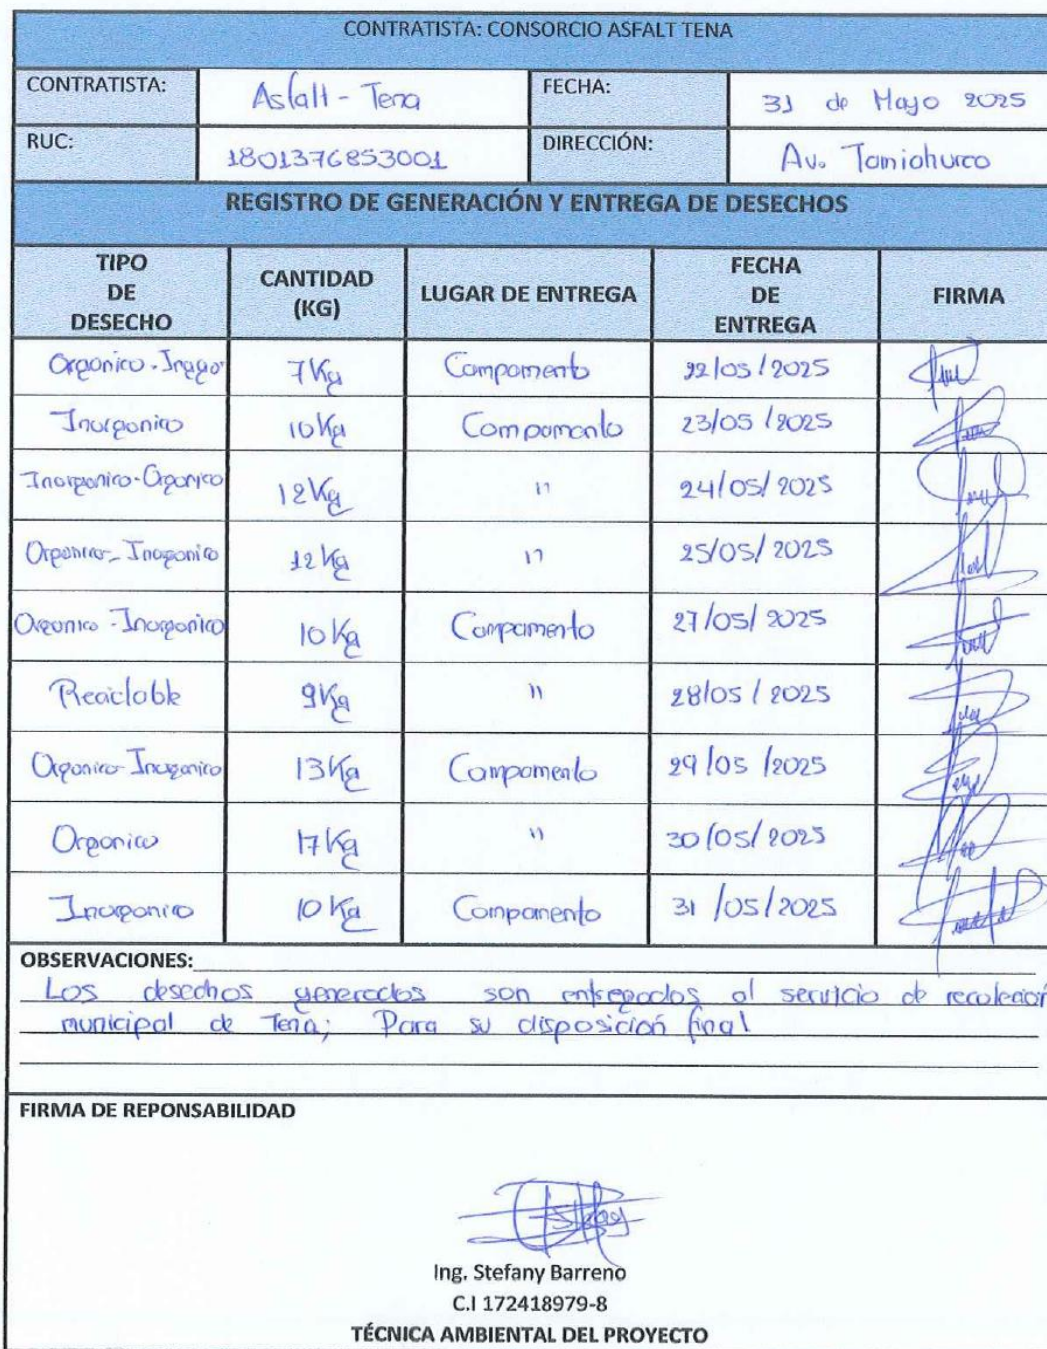 CONTRATISTA: CONSORCIO ASFALT TENA
CONTRATISTA: Asfalt - Tena FECHA: 31 de Mayo 2025
RUC: 1801376853001 DIRECCIÓN: Av. Tamiahurco
REGISTRO DE GENERACIÓN Y ENTREGA DE DESECHOS
TIPO DE DESECHO CANTIDAD (KG) LUGAR DE ENTREGA FECHA DE ENTREGA FIRMA
Organico - 7Kg Campamento 22/05/2025
Inorganico 10Kg Campamento 23/05/2025
Inorganico-Organico 12Kg " 24/05/2025
Organico-Inorganico 12Kg " 25/05/2025
Organico-Inorganico 10Kg Campamento 27/05/2025
Reciclable 9Kg " 28/05/2025
Organico-Inorganico 13Kg Campamento 29/05/2025
Organico 17Kg " 30/05/2025
Inorganico 10Kg Campamento 31/05/2025
OBSERVACIONES:
Los desechos generados son entregados al servicio de recolección
municipal de Tena; Para su disposición final
FIRMA DE REPONSABILIDAD
Ing. Stefany Barreno
C.I 172418979-8
TÉCNICA AMBIENTAL DEL PROYECTO